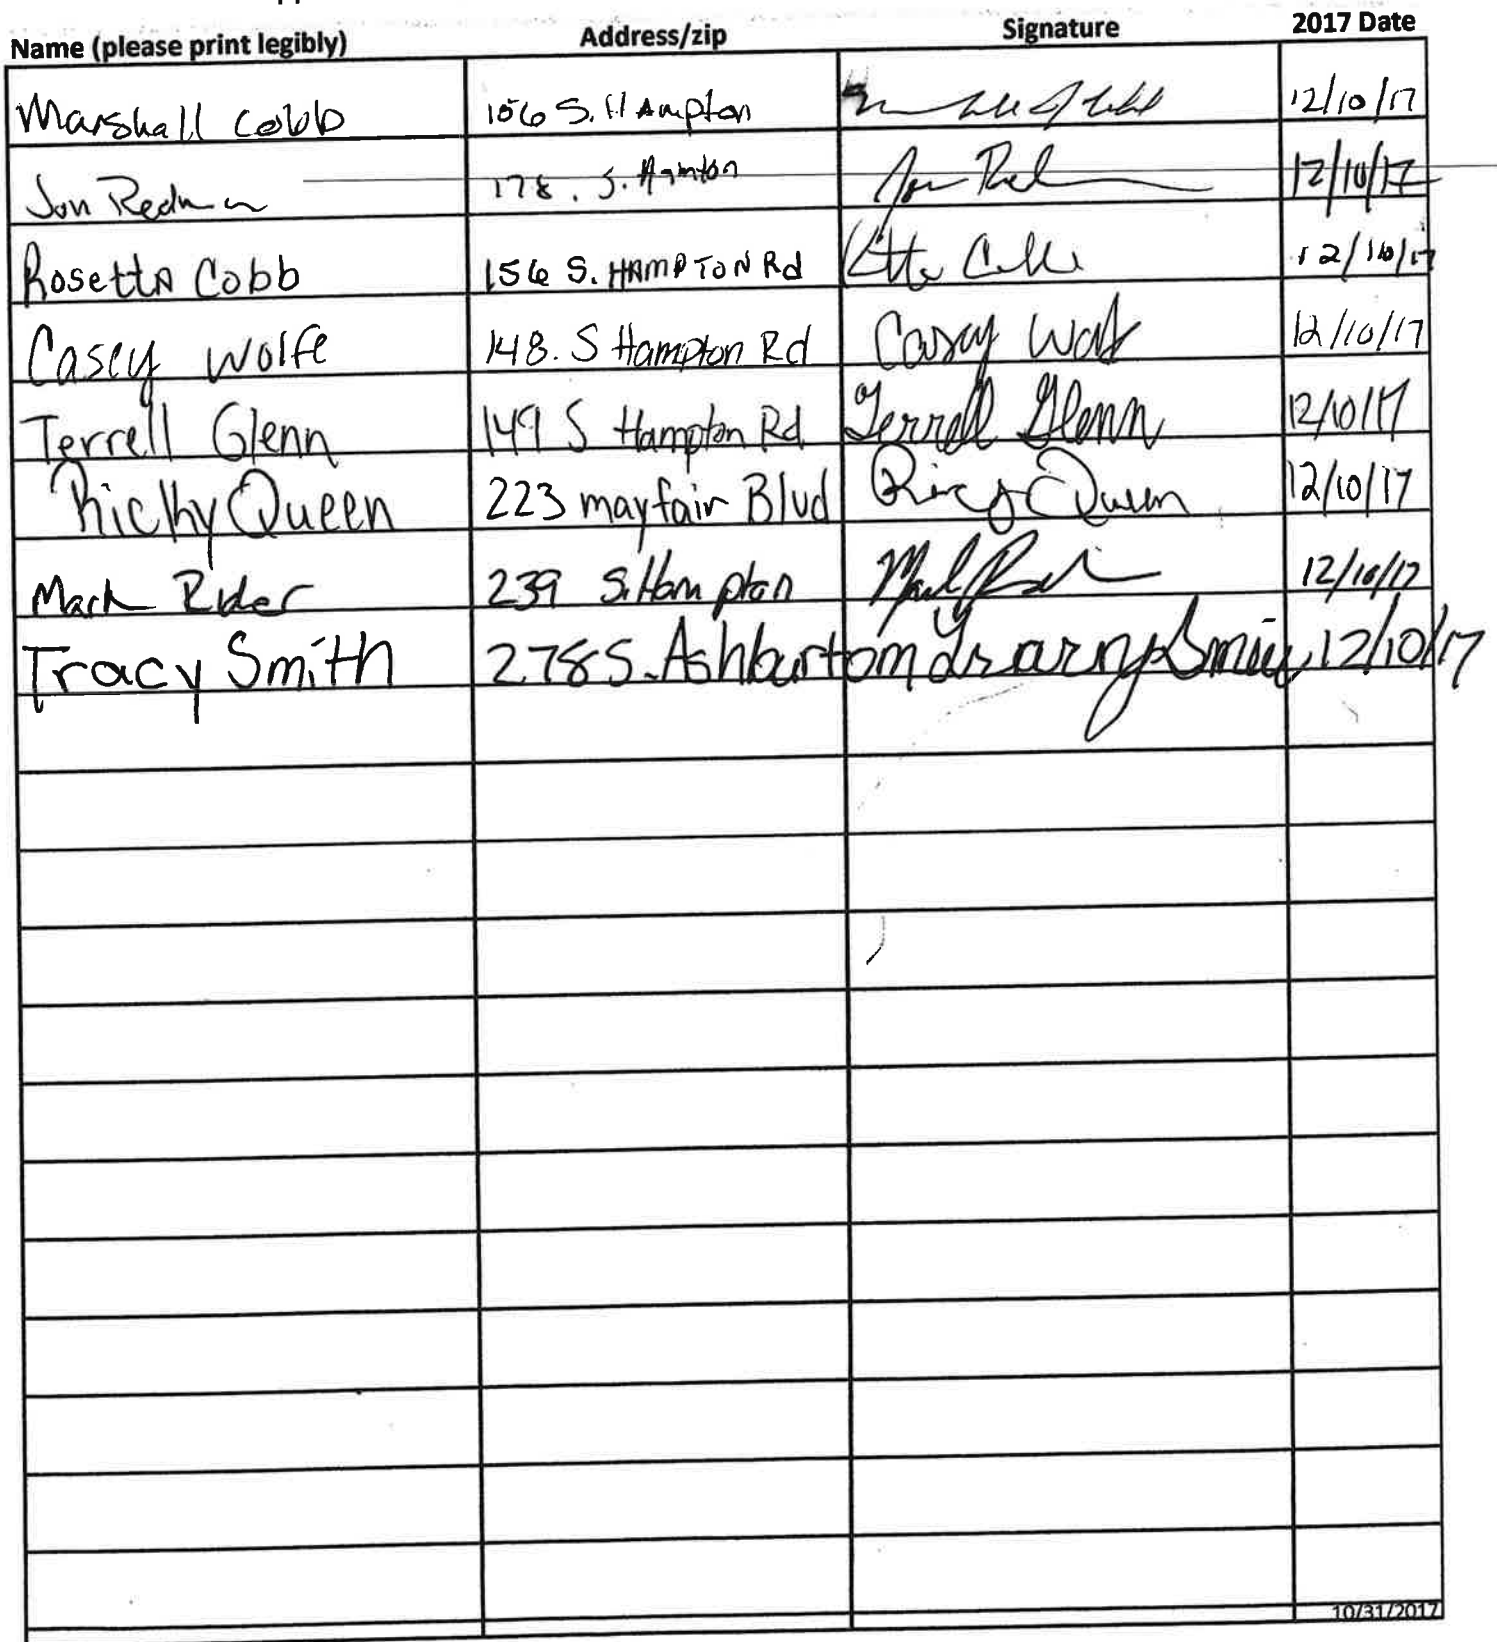 Name (please print legibly) Address/zip Signature 2017 Date
Marshall Cobb 156 S. Hampton 12/10/17
Jon Redman 178. S. Hamton Jon 12/10/17
Rosetta Cobb 156 S. HAMPTON Rd 12/10/17
Casey Wolfe 148. S Hampton Rd Casey Wolf 12/10/17
Terrell Glenn 149 S Hampton Rd Terrell Glenn 12/10/17
Ricky Queen 223 mayfair Blvd Ricky Queen 12/10/17
Mark Rider 239 S. Hampton 12/10/17
Tracy Smith 278 S. Ashburton 12/10/17
10/31/2017